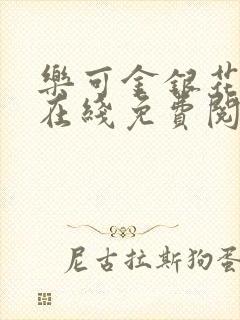 樂可金銀花
在綫免費閱
尼古拉斯狗蛋